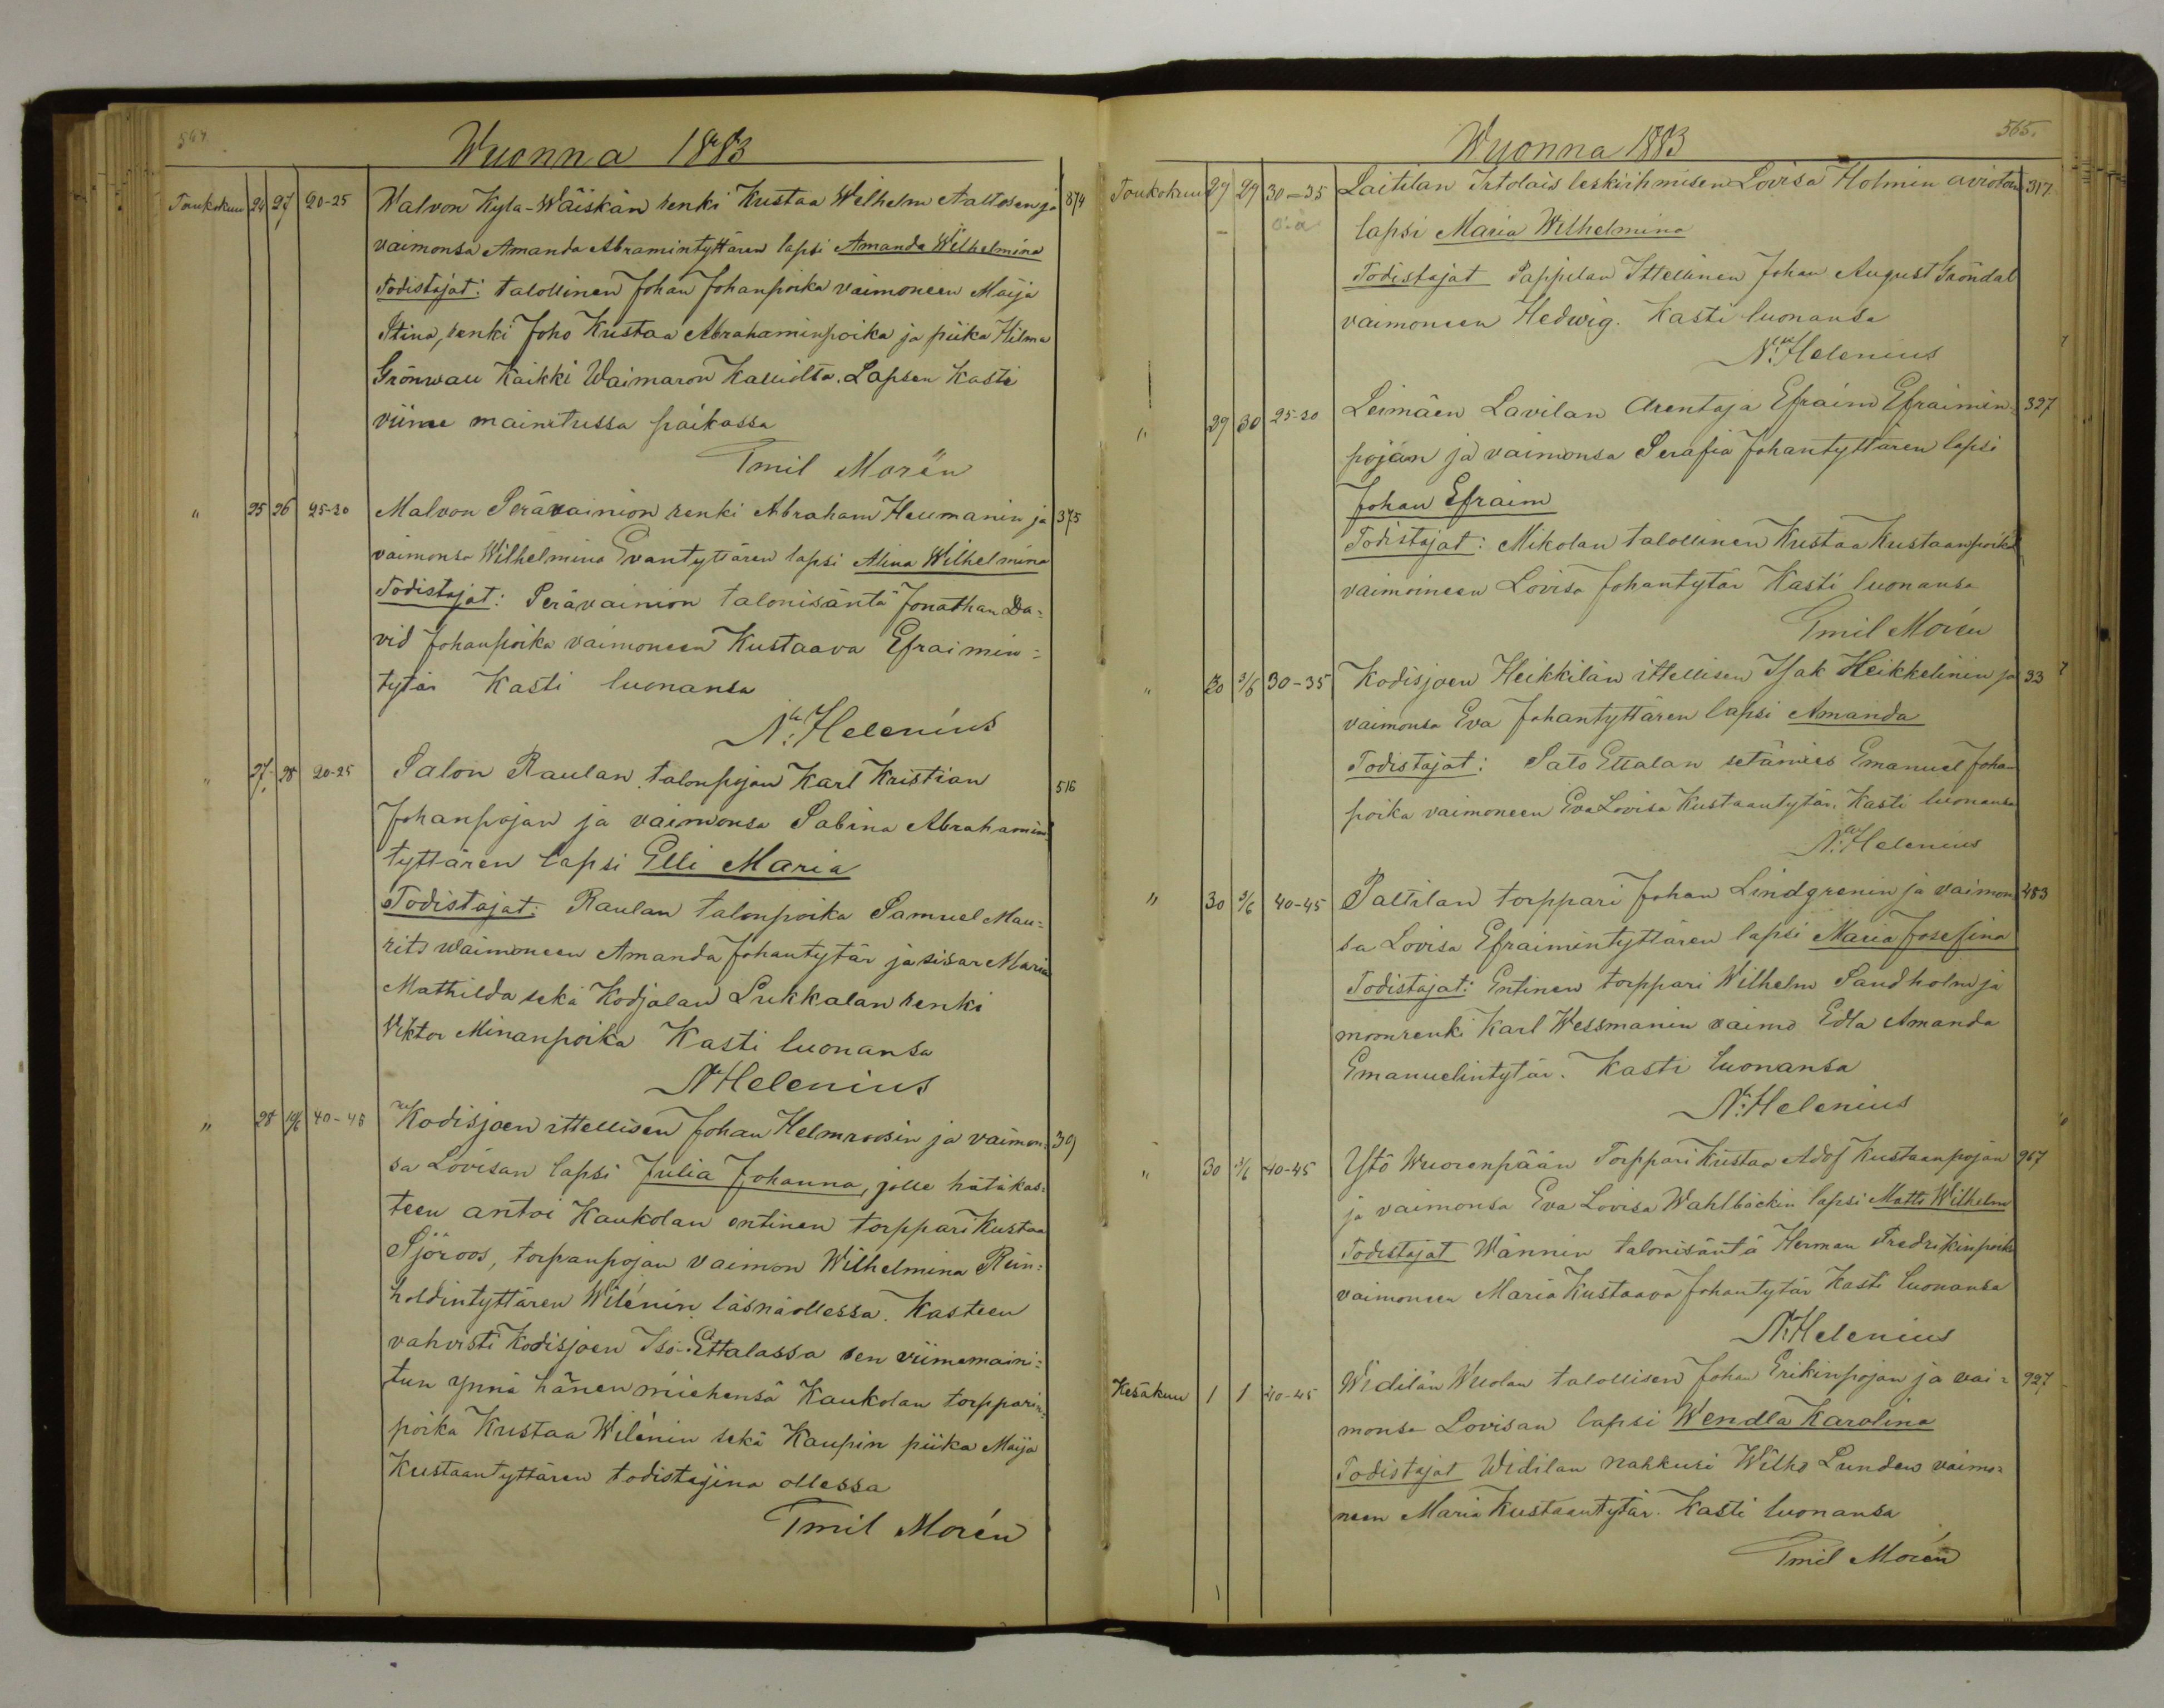 564.
Wuonna 1883
Toukokuu 24 27 20-25 Malvon Kylä-Wäiskän renki Kustaa Wilhelm Aaltosen ja 874
vaimonsa Amanda Abramintyttären lapsi Amanda Wilhelmina
Todistajat: talollinen Johan Johanpoika vaimoneen Maija
Stina, renki Joho Kustaa Abrahaminpoika ja piika Hilma
Grönwall Kaikki Waimaron Kalliolta. Lapsen Kasti
viime mainitussa paikassa
Emil Morén
" 25 26 25-30 Malvon Perävainion renki Abraham Heumanin ja 375
vaimonsa Wilhelmina Evantyttären lapsi Alina Wilhelmina
Todistajat: Perävainion talonisäntä Jonathan Da=
vid Johanpoika vaimoneen Kustaava Efraimin=
tytär Kasti luonansa
N: Helenius
" 27 28 20-25 Salon Raulan talonpojan Karl Kristian 516
Johanpojan ja vaimonsa Sabina Abrahamin
tyttären lapsi Elli Maria
Todistajat: Raulan talonpoika Samuel Mau=
rits waimoneen Amanda Johantytär ja sisar Maria
Mathilda sekä Kodjalan Lukkalan renki
Viktor Minanpoika Kasti luonansa
N Helenius
" 28 10/6 40-45 Kodisjoen ittellisen Johan Helmroosin ja vaimon= 39
sa Lovisan lapsi Julia Johanna, jolle hätäkas=
teen antoi Kaukolan entinen torppari Kustaa
Sjöroos, torpanpojan vaimon Wilhelmina Rein=
holdintyttären Wilénin läsnäollessa. Kasteen
vahvisti Kodisjoen Iso-Ettalassa sen viimemaini=
tun ynnä hänen miehensä Kaukolan torpparin=
poika Kustaa Wilénin sekä Kaupin piika Maija
Kustaantyttären todistajina ollessa
Emil Morén
565.
Wuonna 1883
Toukokuu 27 29 30-35 Laitilan Irtolais leskiihmisen Lovisa Holmin aviotoin 317
lapsi Maria Wilhelmina
Todistajat Pappilan Ittellinen Johan August Gröndal
vaimoneen Hedwig. Kasti luonansa
N: Helenius
" 29 30 25-30 Leimäen Lavilan Arentaja Efraim Efraimin= 327
pojan ja vaimonsa Serafia Johantyttären lapsi
Johan Efraim
Todistajat: Mikolan talollinen Kustaa Kustaanpoika
vaimoineen Lovisa Johantytär Kasti luonansa
Emil Morén
" 30 3/6 30-35 Kodisjoen Heikkilän ittellisen Isak Heikkelinin ja 33
vaimonsa Eva Johantyttären lapsi Amanda
Todistajat: Sato Ettalan setämies Emanuel Johan
poika vaimoneen Eva Lovisa Kustaantytär. Kasti luonansa
N: Helenius
" 30 3/6 40-45 Paltilan torppari Johan Lindgrenin ja vaimon 483
sa Lovisa Efraimintyttären lapsi Maria Josefina
Todistajat: Entinen torppari Wilhelm Sandholm ja
muonrenki Karl Wessmanin vaimo Edla Amanda
Emanuelintytär. Kasti luonansa
N: Helenius
" 30 3/6 40-45 Ystö Wuorenpään Torppari Kustaa Adof Kustaanpojan 967
ja vaimonsa Eva Lovisa Wahlbäckin lapsi Matts Wilhelm
Todistajat Männin talonisäntä Herman Fredrikinpoika
vaimoneen Maria Kustaava Johantytär Kasti luonansa
N: Helenius
Kesäkuu 1 1 40-45 Widilän Wuolan talollisen Johan Erikinpojan ja vai= 927
monsa Lovisan lapsi Wendla Karolina
Todistajat Widilan nahkuri Wilho Lunden vaimo=
neen Maria Kustaantytär. Kasti luonansa
Emil Morén